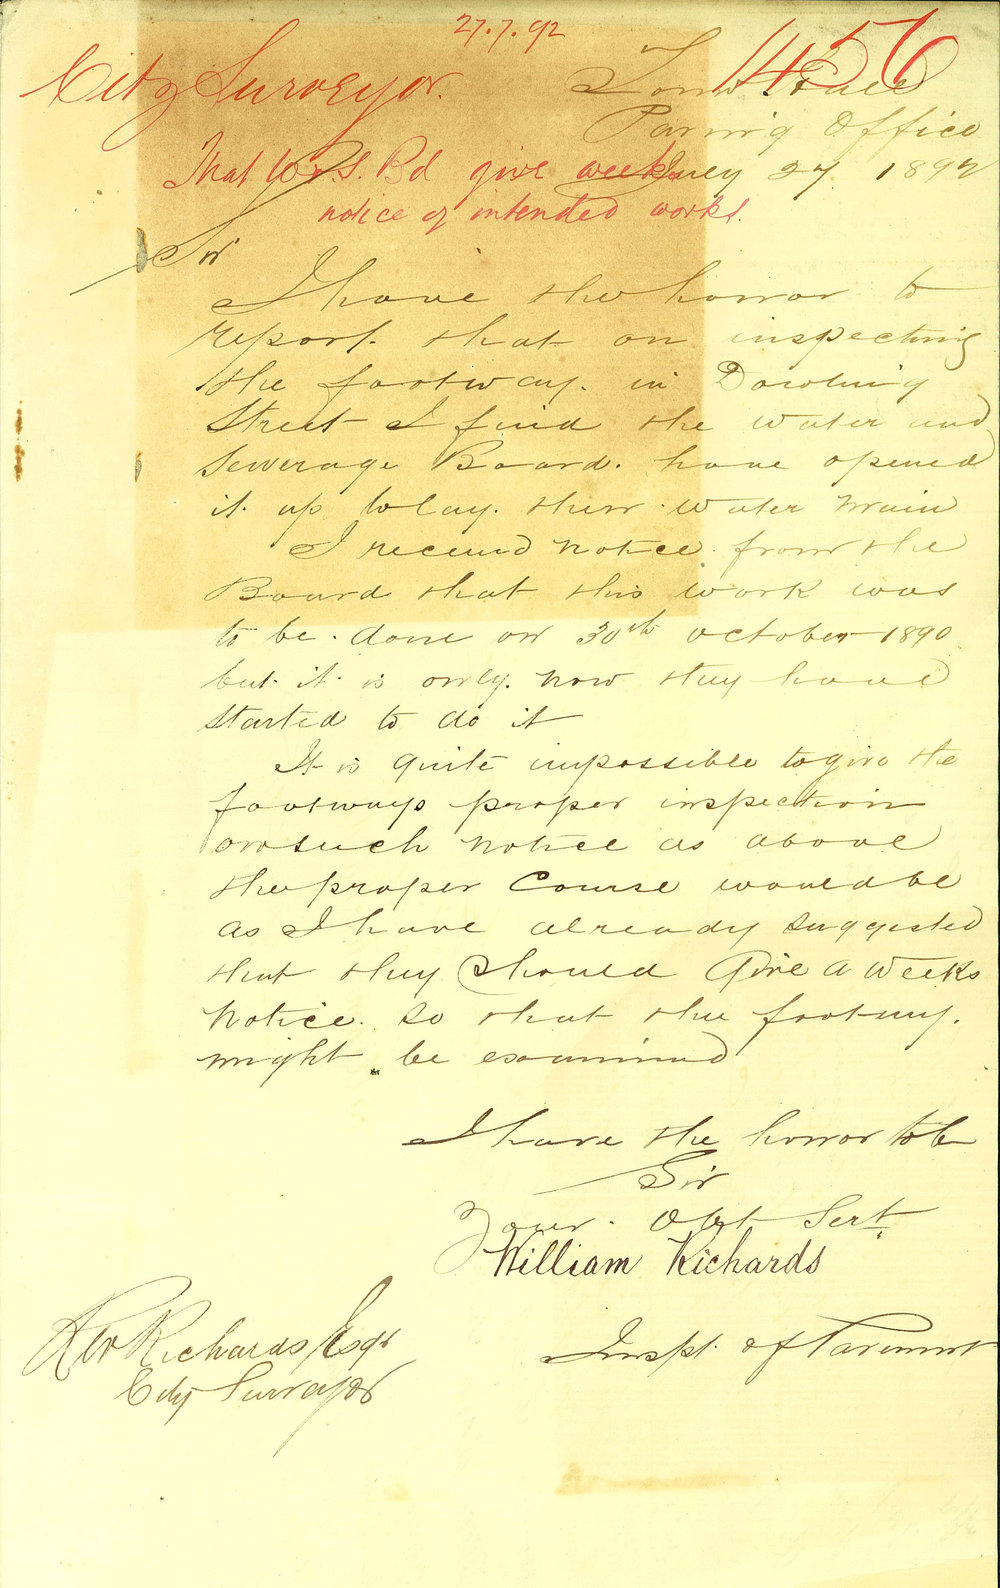 27.7.92
1456
City Surveyor.
Town Hall
Paving Office
That W. & S. Bd give weeks
July 27 1892
notice of intended works.
Sir
I have the honor to
report. that on inspecting
the footway. in Dowling
Street I find the Water and
Sewerage Board. have opened
it up to lay. their water main
I received notice from the
Board that this work was
to be. done on 30th October 1890
but. it. is only. now they have
started to do it
It is quite impossible to give the
footways proper inspection
on such notice as above
the proper Course would be
as I have already suggested
that they should Give a weeks
notice. so that the footway.
might be examined
I have the honor to be
Sir
Your. Obt Sert.
William Richards
Inspt. of Pavement
R W Richards Esqr
City Surveyor